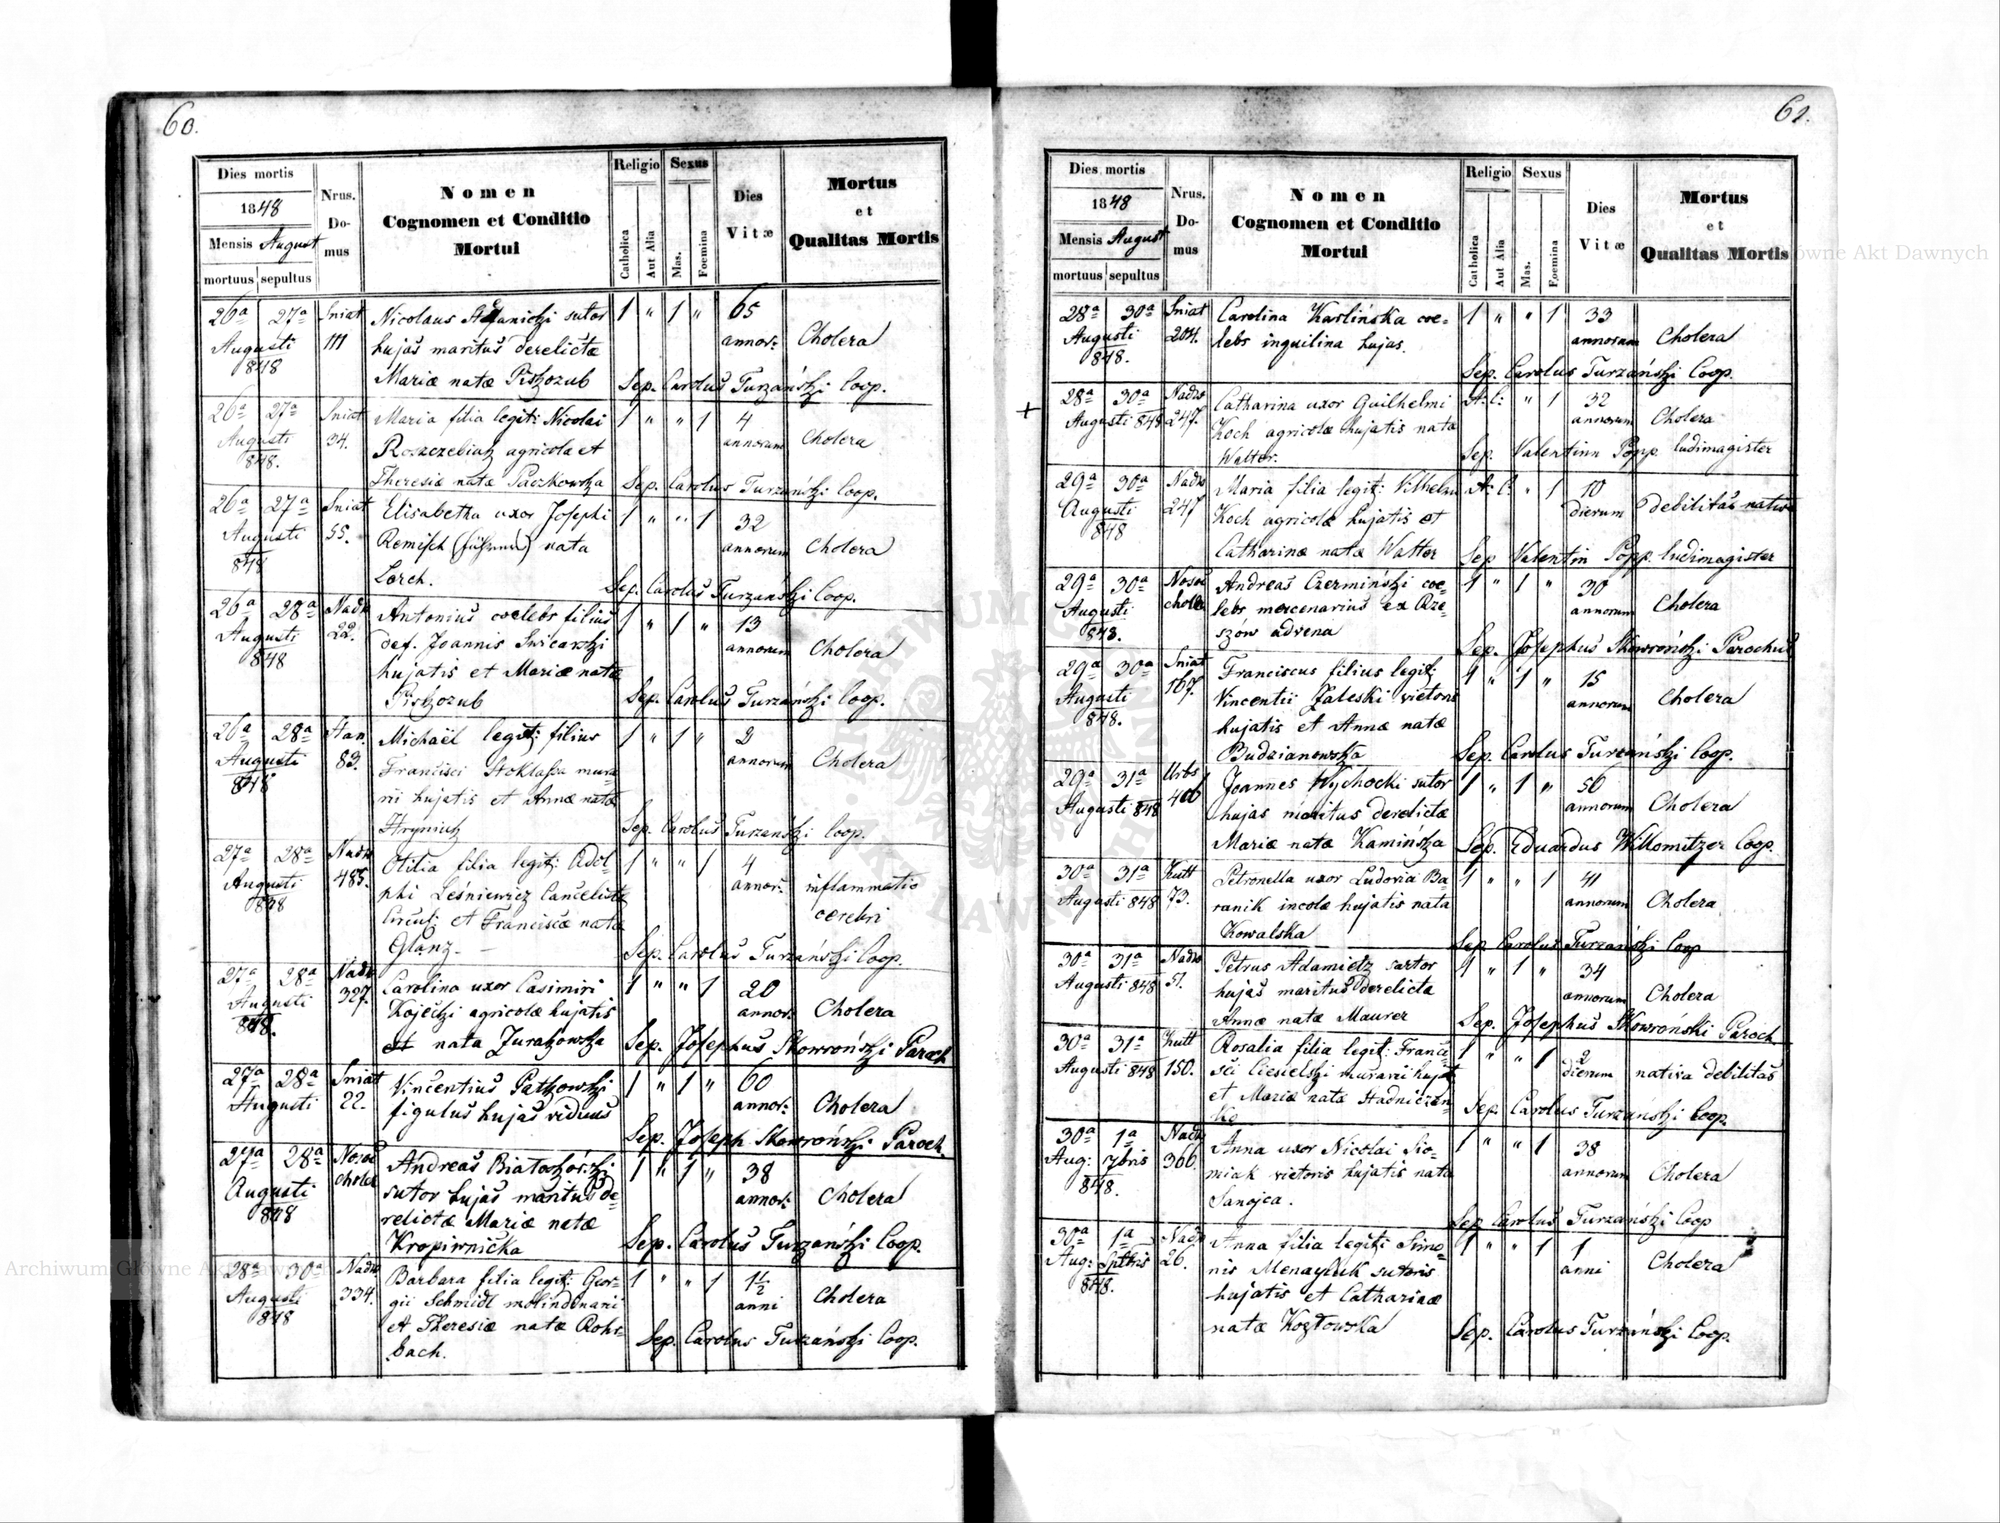 60.
Dies mortis
1848
Mensis August
mortuus sepultus
Nrus.
Do-
mus
Nomen
Cognomen et Conditio
Mortui
Religio
Catholica
Aut Alia
Sexus
Mas.
Foemina
Dies
Vitæ
Mortus
et
Qualitas Mortis
26a 27a Sniat Nicolaus sutor 1 " 1 " 65
Augusti 111 hujas maritus derelictæ annor: Cholera
848 Mariæ natæ Piskozub Sep. Carolus Turzański Coop.
26a 27a Sniat Maria filia legit: Nicolai 1 " " 1 4
Augusti 34. agricola et annorum Cholera
848. Theresiæ natæ Paczkowska Sep. Carolus Turzański Coop.
26a 27a Sniat Elisabetha uxor Josephi 1 " " 1 32
Augusti 55. Remisch nata annorum Cholera
848 Lorch. Sep. Carolus Turzański Coop.
26a 28a Nadw Antonius coelebs filius 1 " 1 " 13
Augusti 22. def. Joannis annorum Cholera
848 hujatis et Mariæ natæ
Piskozub Sep. Carolus Turzański Coop.
26a 28a Michaël legit: filius 1 " 1 " 2
Augusti 83. Francisci Stoklassa mura- annorum Cholera
848 rii hujatis et Annæ natæ
Hryniuk Sep. Carolus Turzański Coop.
27a 28a Nadw Otilia filia legit: Adol- 1 " " 1 4
Augusti 485. phi Leśniewicz Cancelistæ annor: inflammatio
848 Circuli et Franciscæ natæ cerebri
Glanz. Sep. Carolus Turzański Coop.
27a 28a Nadw Carolina uxor Casimiri 1 " " 1 20
Augusti 327. agricolæ hujatis annor: Cholera
848. nata Zurakowska Sep. Josephus Skowroński Paroch
27a 28a Sniat Vincentius Patkowski 1 " 1 " 60
Augusti 22. figulus hujas viduus annor: Cholera
Sep. Joseph Skowroński Paroch.
27a 28a Nosoc Andreas 1 " 1 " 38
Augusti choler sutor hujas maritus de- annor: Cholera
848 relictæ Mariæ natæ
Kropiwnicka Sep. Carolus Turzański Coop.
28a 30a Nadw Barbara filia legit: Geor- 1 " " 1 1½
Augusti 334. gii Schmidl molindinarii anni Cholera
848 et Theresiæ natæ Rohr-
bach. Sep. Carolus Turzański Coop.
61.
Dies mortis
1848
Mensis August
mortuus sepultus
Nrus.
Do-
mus
Nomen
Cognomen et Conditio
Mortui
Religio
Catholica
Aut Alia
Sexus
Mas.
Foemina
Dies
Vitæ
Mortus
et
Qualitas Mortis
28a 30a Sniat Carolina Karlińska coe- 1 " " 1 33
Augusti 204. lebs inquilina hujas. annorum Cholera
848. Sep. Carolus Turzański Coop.
+ 28a 30a Nadw Catharina uxor Guilhelmi A: C: " 1 32
Augusti 848 247. Koch agricolæ hujatis nata annorum Cholera
Walter. Sep. Valentinn Popp ludimagister
29a 30a Nadw Maria filia legit: Vilhelmi A: C: " 1 10
Augusti 247 Koch agricolæ hujatis et dierum debilitas nativa
848 Catharinæ natæ Walter Sep Valentin Popp ludimagister
29a 30a Nosoc Andreas Czermiński coe- 1 " 1 " 30
Augusti choler lebs mercenarius ex Rze- annorum Cholera
848. szów advena Sep. Josephus Skowroński Parochus
29a 30a Sniat Franciscus filius legit: 1 " 1 " 15
Augusti 167. Vincentii Zaleski vietoris annorum Cholera
848. hujatis et Annæ natæ
Budzianowska Sep. Carolus Turzański Coop.
29a 31a Urbs Joannes Wychocki sutor 1 " 1 " 56
Augusti 848 406 hujas maritus derelictæ annorum Cholera
Mariæ natæ Kamińska Sep. Eduardus Willomitzer Coop.
30a 31a Kutt Petronella uxor Ludovia Ba- 1 " " 1 41
Augusti 848 73. ranik incolæ hujatis nata annorum Cholera
Kowalska Sep Carolus Turzański Coop
30a 31a Nadw Petrus Adamietz sartor 1 " 1 " 34
Augusti 848 51. hujas maritus derelicta annorum Cholera
Annæ natæ Maurer Sep. Josephus Skowroński Paroch
30a 31a Kutt Rosalia filia legit: Franci- 1 " " 1 2
Augusti 848 150. sci Ciesielski murarii hujat dierum nativa debilitas
et Mariæ natæ Sep. Carolus Turzański Coop.
30a 1a Nadw Anna uxor Nicolai Sio- 1 " " 1 38
Aug: 7bris 366. miak vietoris hujatis nata annorum Cholera
848. Sanojca. Sep Carolus Turzański Coop
30a 1a Nadw Anna filia legit: Simo- 1 " " 1 1
Aug: Sptbris 26. nis sutoris anni Cholera
848. hujatis et Catharinæ
natæ Kozłowska Sep. Carolus Turzański Coop.
ARCHIWUM GŁÓWNE AKT DAWNYCH
Archiwum Główne Akt Dawnych
Archiwum Główne Akt Dawnych